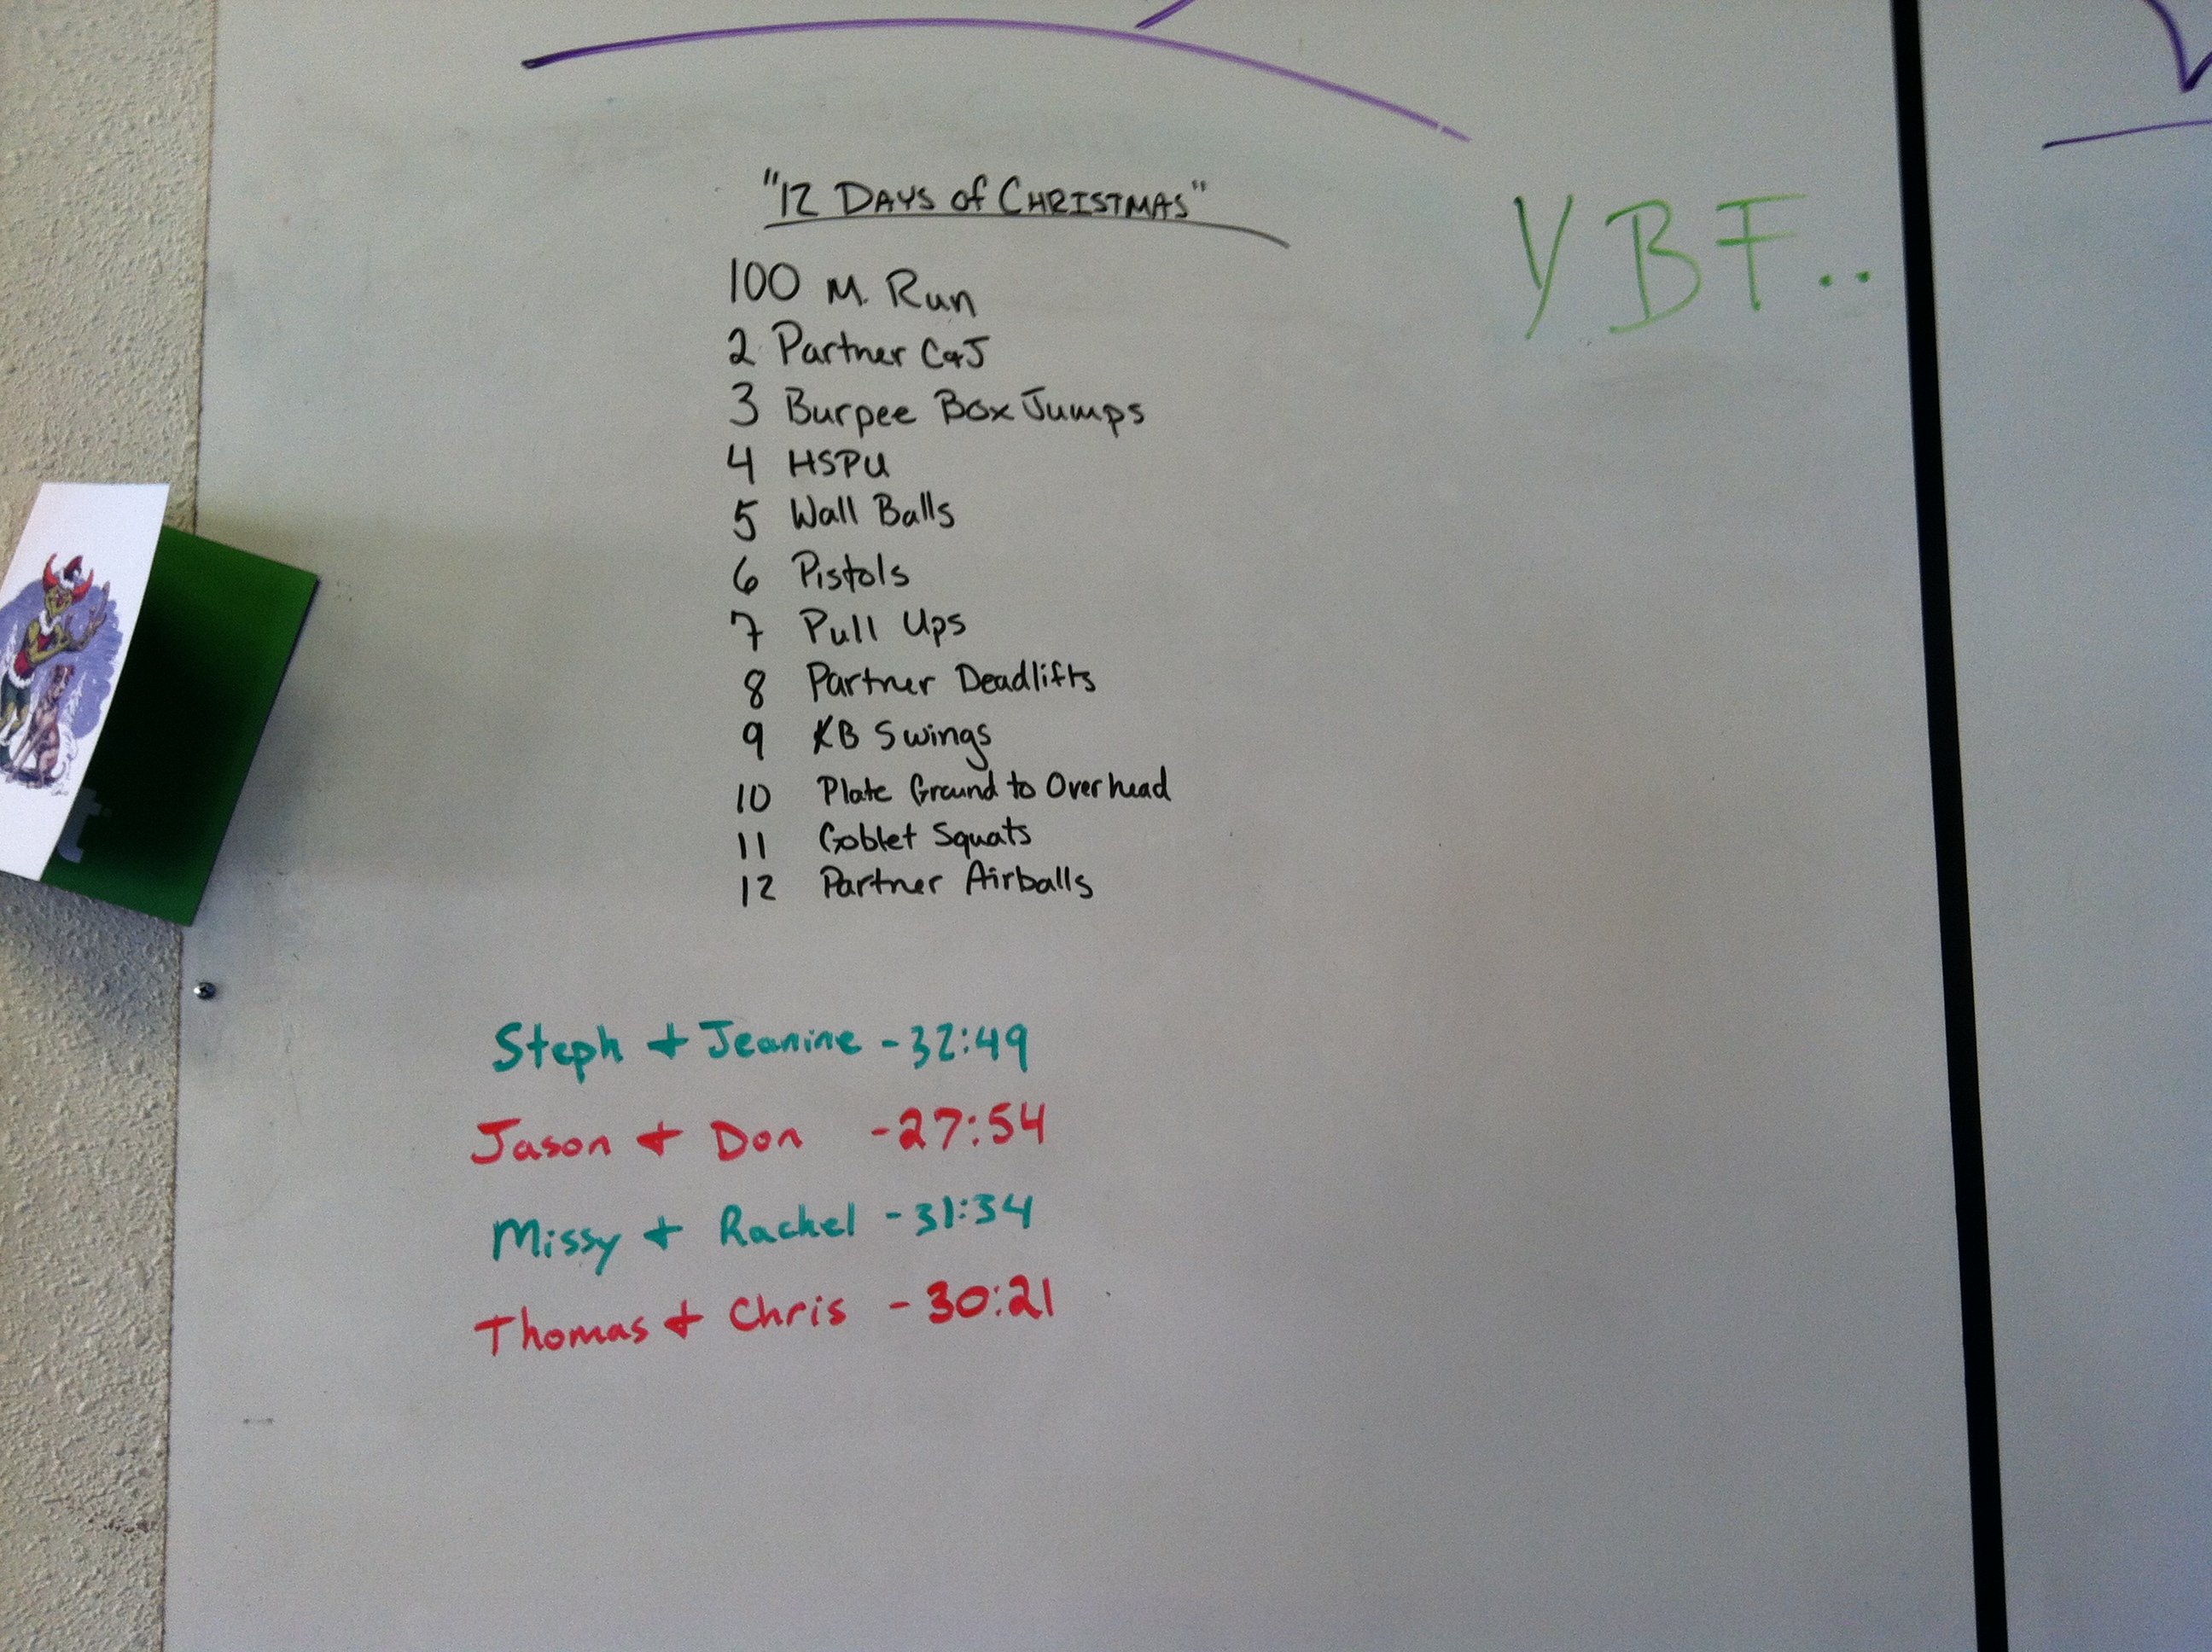 "12 DAYS of CHRISTMAS"
100 M. Run
2 Partner C&J
3 Burpee Box Jumps
4 HSPU
5 Wall Balls
6 Pistols
7 Pull Ups
8 Partner Deadlifts
9 KB Swings
10 Plate Ground to Overhead
11 Goblet Squats
12 Partner Airballs
YBF..
Steph + Jeanine - 32:49
Jason + Don - 27:54
Missy + Rachel - 31:34
Thomas + Chris - 30:21
t